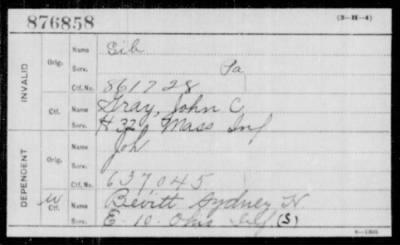 876858 (3-H-4)
INVALID
Orig. Name Sib
Serv. Pa
Ctf. No. 861728
Ctf. Name Gray, John C
Serv. H 32 Mass Inf
DEPENDENT
Orig. Name Joh
Serv.
Ctf. No. 637045
W Ctf. Name Bevitt Sydney H
Serv. E. 10. Ohio Inf (S)